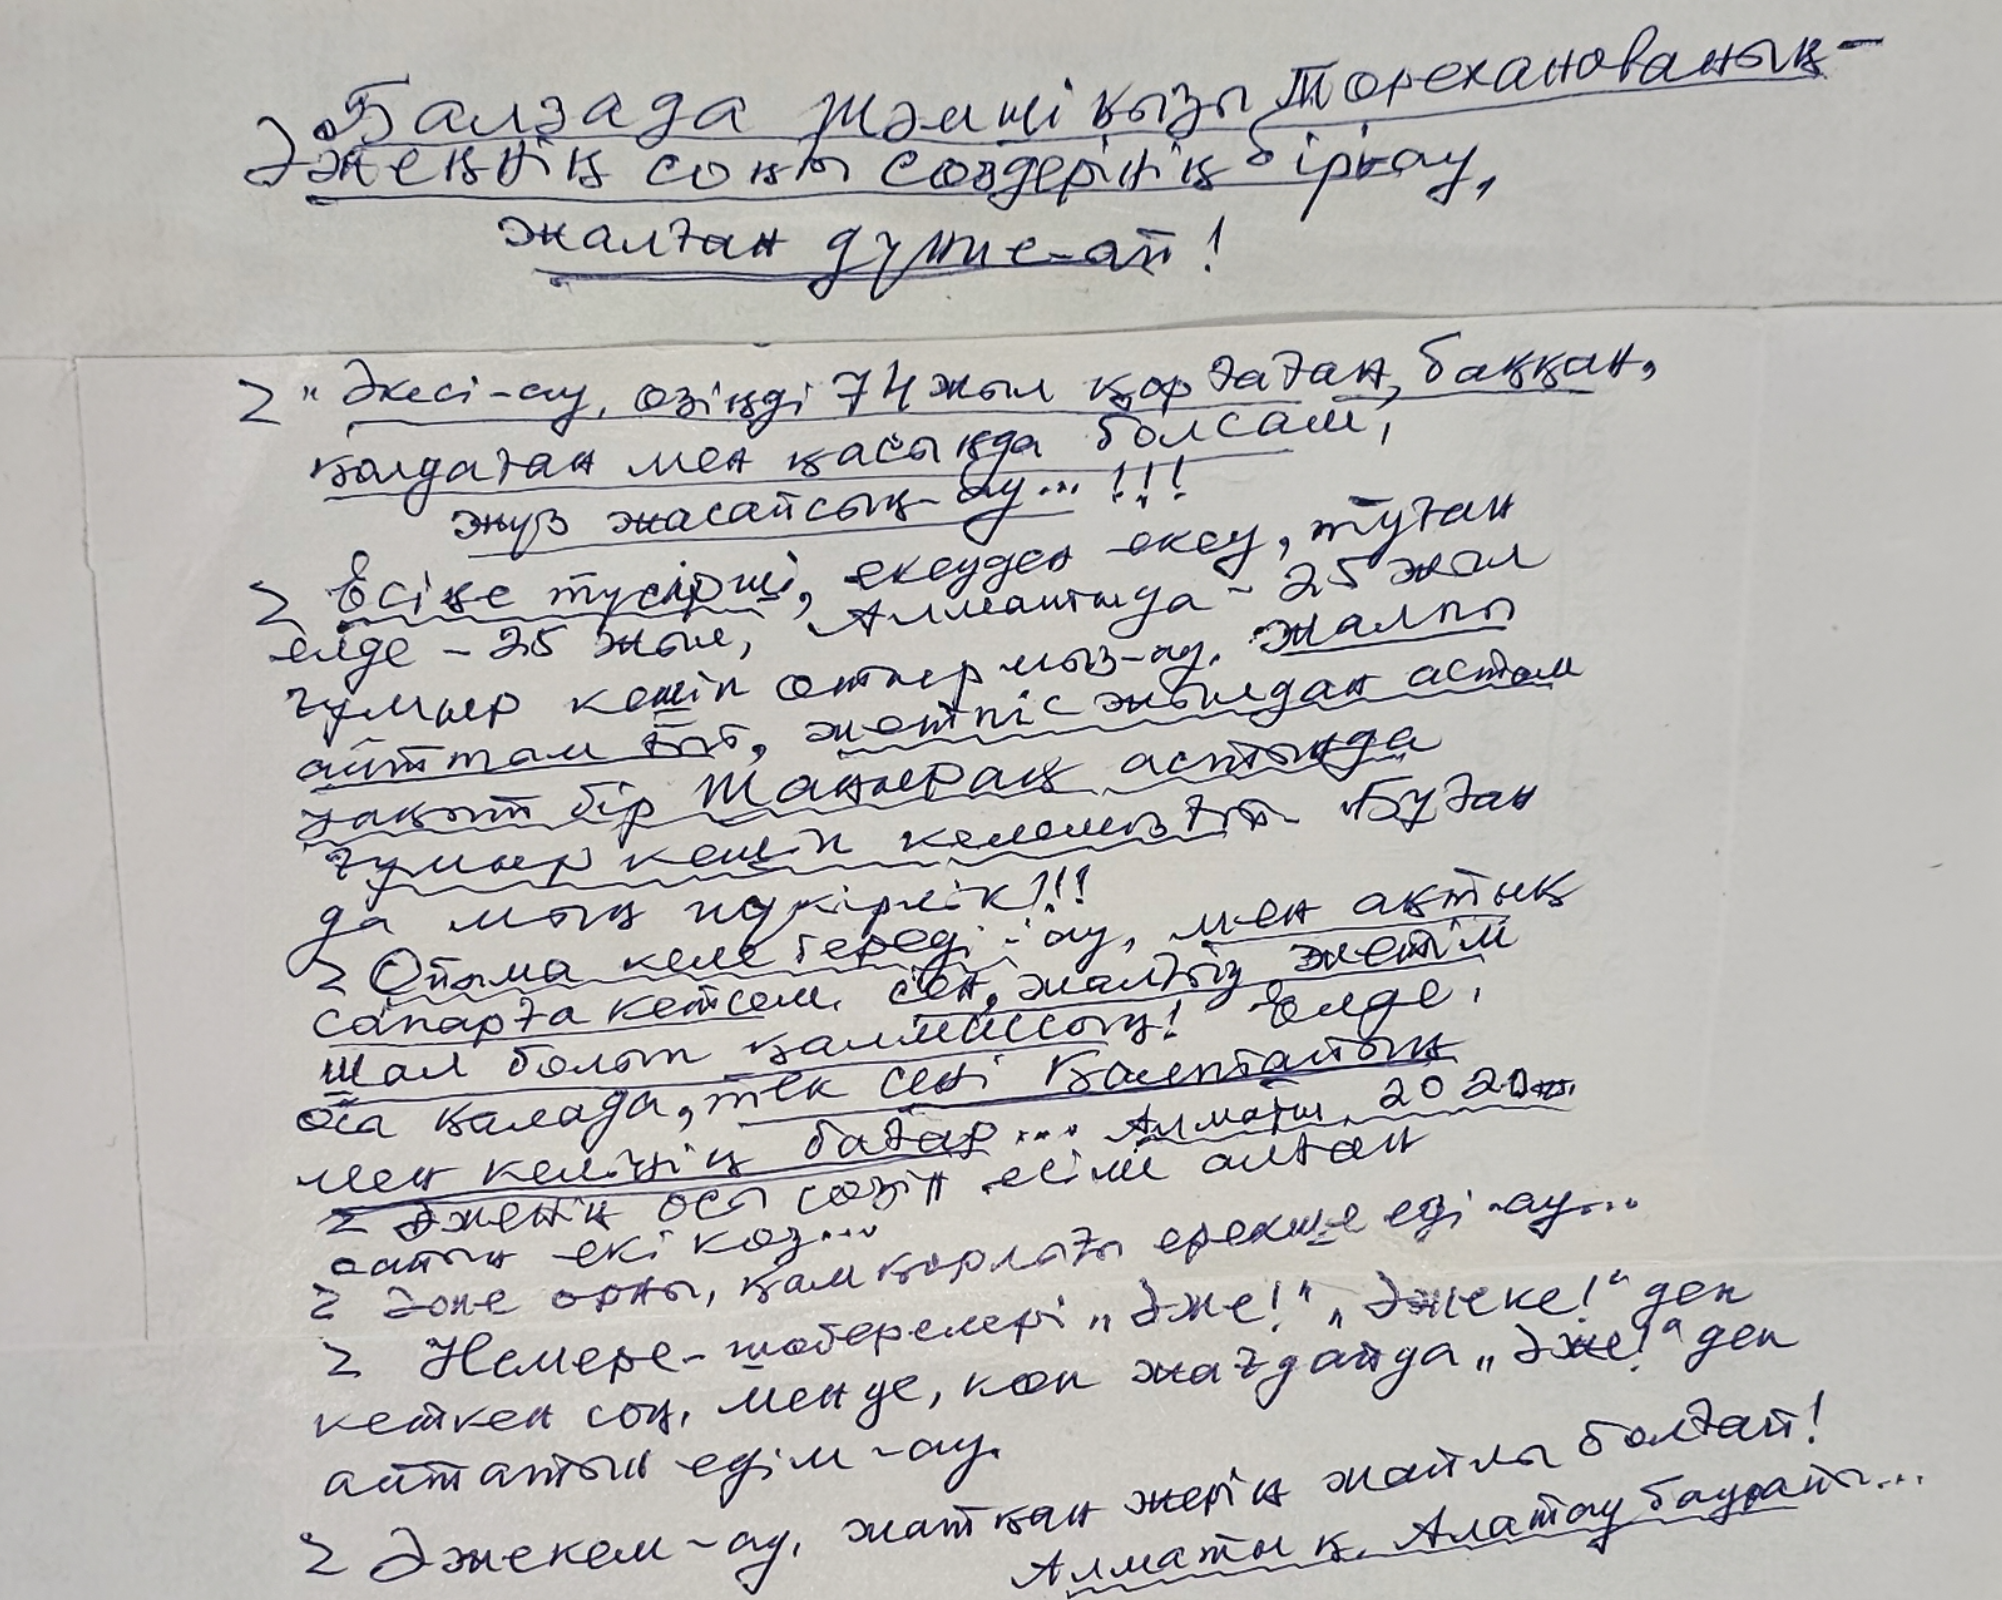 Балзада Жәмші қызы Төрехановның -
Әженңің соңы сөздерінің бірі-ау,
жалған дүние-ай!
" Әкесі-ау, өзіңді 74 жыл қорғаған, баққан,
қолдаған мен қасыңда болсам,
жүз жасайсың-ау...!!!
Есіңе түсірші, екеуден екеу, туған
елде - 25 жыл, Алматыда - 25 жыл
ғұмыр кешіп өтіппіз-ау. Жалпы
айтам ғой, жетпіс жылдан астам
уақыт бір шаңырақ астында
ғұмыр кешіп келеміз ғой. Бұған
да мың шүкірлік!!!
Ойыма келе береді-ау, мен ақтық
сапарға кетсем. сен, жалғыз жетім
шал болып қалмайсың! Елде,
осы қалада, тек сені Қалыптайың
мен келінің бағар... Алматы, 2020ж.
Әженің осы сөзін есіме алған
сайын екі көз...
Әже орны, қамқорлығы ерекше еді-ау...
Немере-шөберелері „Әже!", „Әжеке!" деп
кеткен соң, мен де, көп жағдайда „Әже!" деп
айтатын едім-ау.
Әжекем-ау, жатқан жерің жайлы болғай!
Алматы қ. Алатау баурайы...